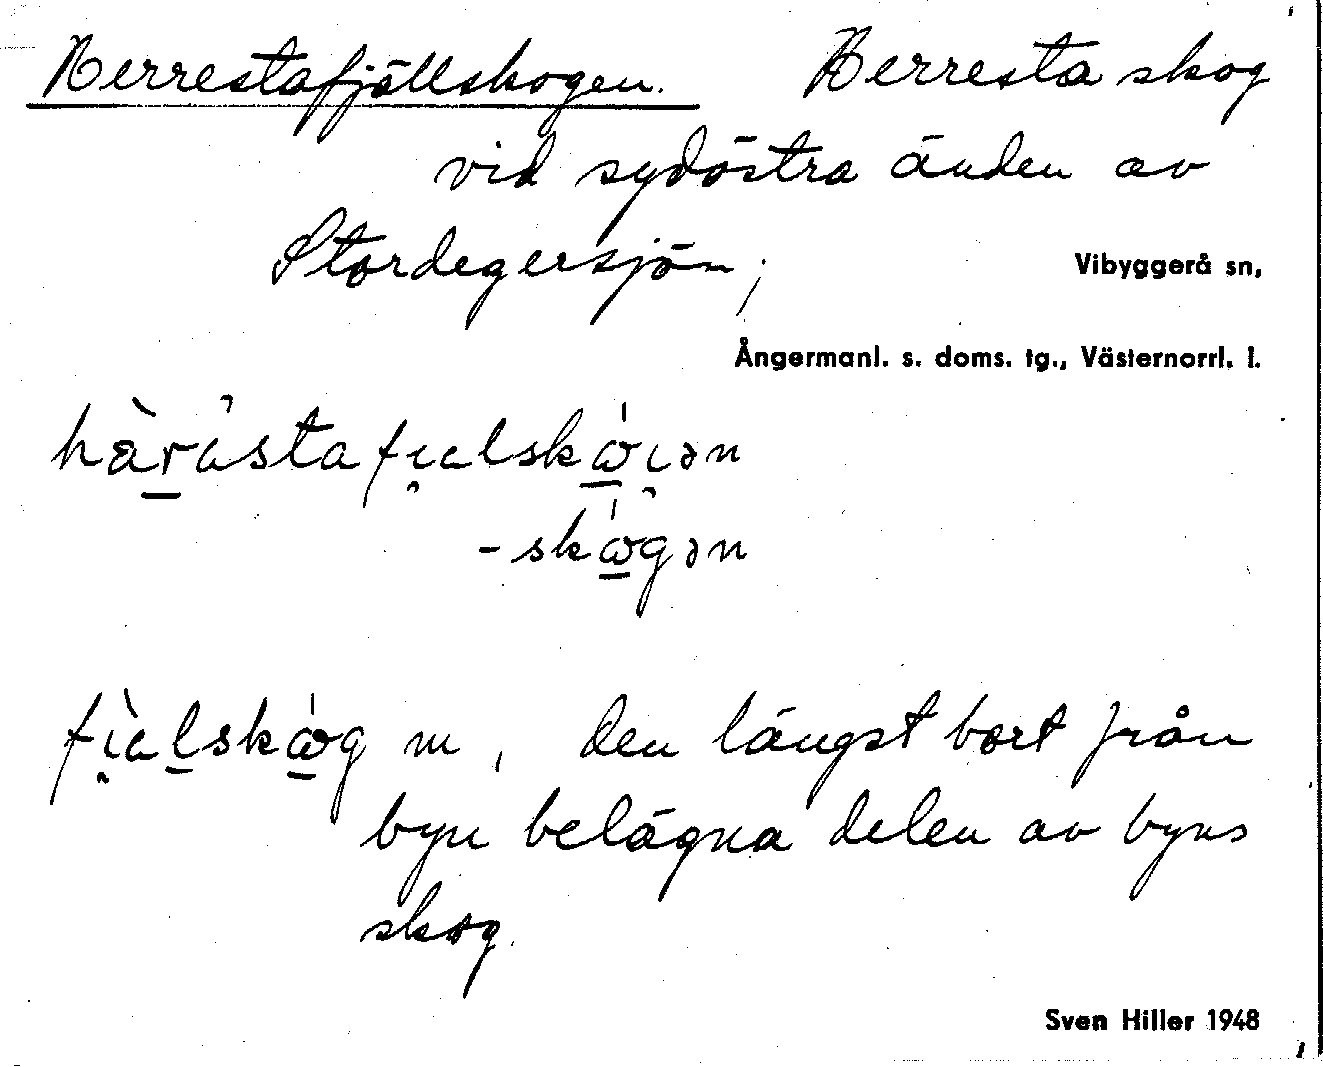 Herrestafjällskogen. Herresta skog
vid sydöstra änden av
Stordegersjön; Vibyggerå sn,
Ångermanl. s. doms. tg., Västernorrl. l.
den längst bort från
byn belägna delen av byns
skog.
Sven Hiller 1948